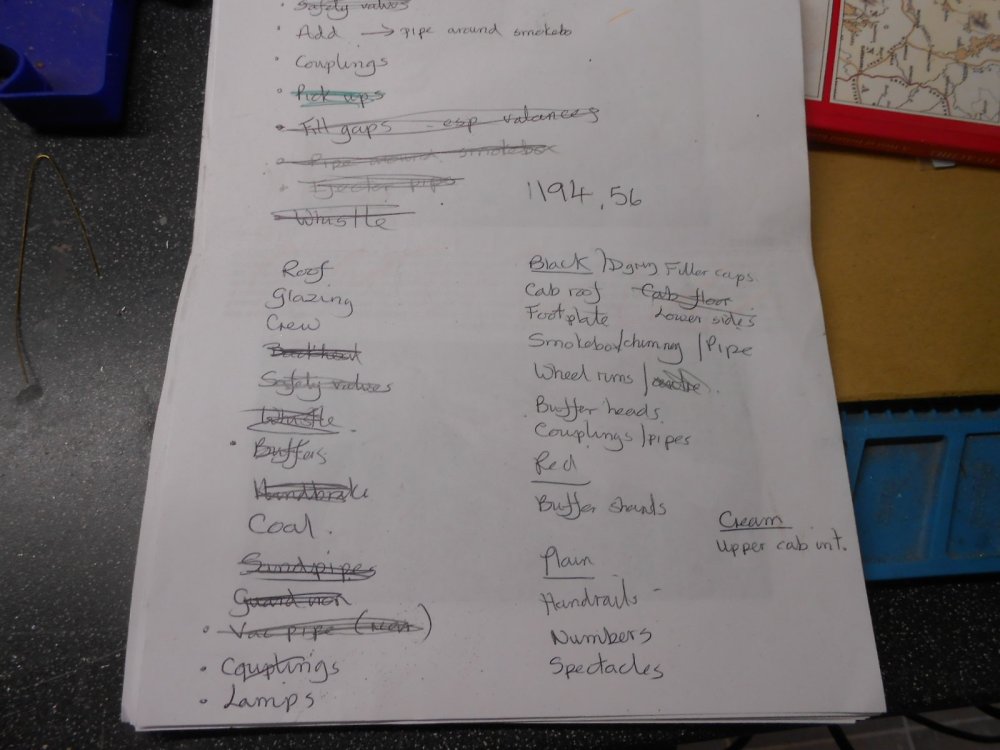 · Safety valves
· Add → pipe around smokebo
· Couplings
· Pick ups
· Fill gaps - esp valances
· Pipe around smokebox
· Ejector pipes
· Whistle
1194.56
Roof
Glazing
Crew
Backhead
Safety valves
Whistle
· Buffers
Handbrake
Coal.
Sandpipes
Guard iron
· Vac pipe (rear)
· Couplings
· Lamps
Black / D grey Filler caps.
Cab roof Cab floor
Footplate Lower sides
Smokebox/chimney / Pipe
Wheel rims /
Buffer heads.
Couplings / pipes
Red
Buffer shanks
Plain
Handrails -
Numbers
Spectacles
Cream
Upper cab int.